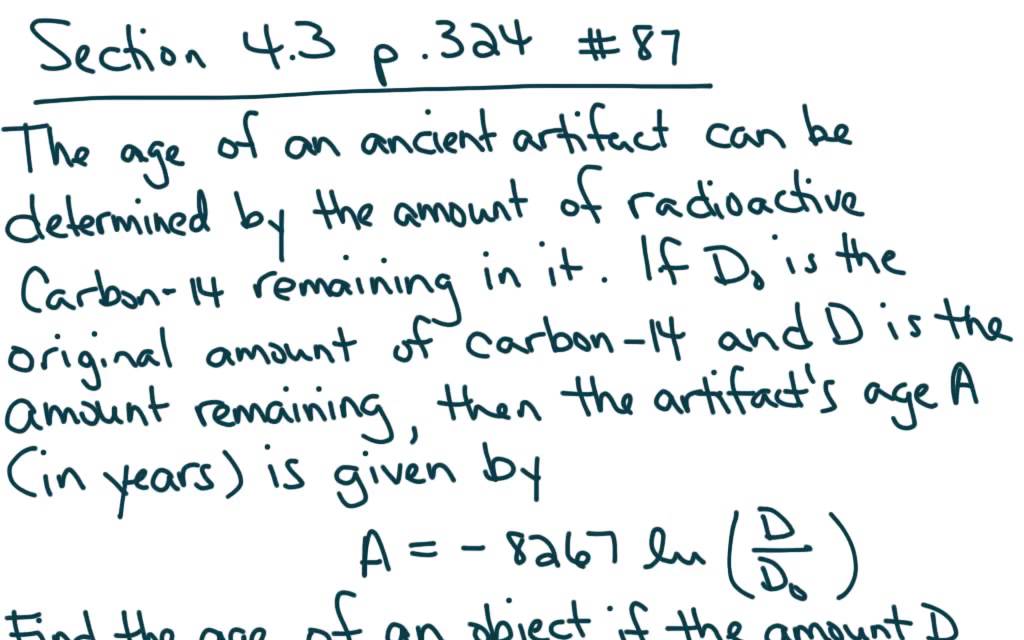 Section 4.3 p.324 #87
The age of an ancient artifact can be
determined by the amount of radioactive
Carbon-14 remaining in it. If D₀ is the
original amount of carbon-14 and D is the
amount remaining, then the artifact's age A
(in years) is given by
A = - 8267 ln (D/D₀)
Find the age of an object if the amount D